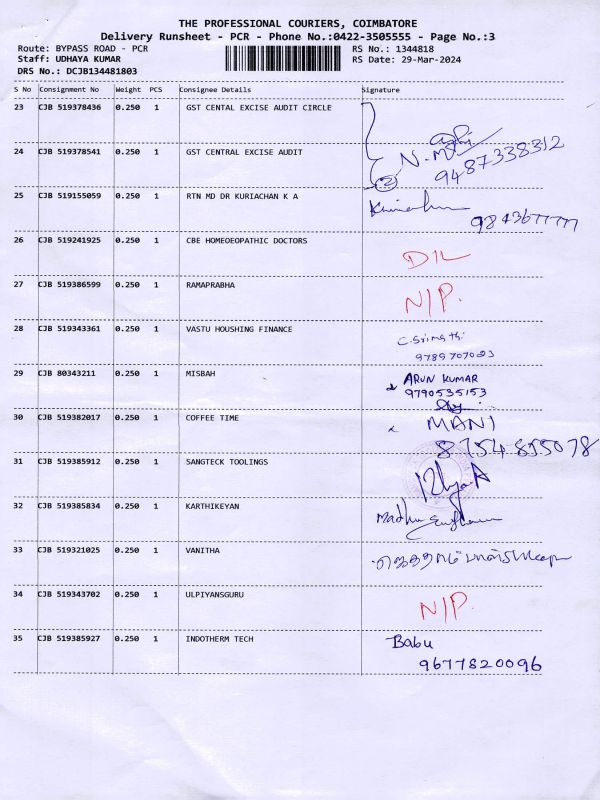 THE PROFESSIONAL COURIERS, COIMBATORE
Delivery Runsheet - PCR - Phone No.:0422-3505555 - Page No.:3
Route: BYPASS ROAD - PCR RS No.: 1344818
Staff: UDHAYA KUMAR RS Date: 29-Mar-2024
DRS No.: DCJB134481803
S No Consignment No Weight PCS Consignee Details Signature
23 CJB 519378436 0.250 1 GST CENTAL EXCISE AUDIT CIRCLE
24 CJB 519378541 0.250 1 GST CENTRAL EXCISE AUDIT
2 N.M 9487338312
25 CJB 519155059 0.250 1 RTN MD DR KURIACHAN K A
26 CJB 519241925 0.250 1 CBE HOMEOEOPATHIC DOCTORS
D/L
27 CJB 519386599 0.250 1 RAMAPRABHA
N/P.
28 CJB 519343361 0.250 1 VASTU HOUSHING FINANCE
C. Srimathi
9789707023
29 CJB 80343211 0.250 1 MISBAH ARUN KUMAR
9790535153
30 CJB 519382017 0.250 1 COFFEE TIME MANI
8754855078
31 CJB 519385912 0.250 1 SANGTECK TOOLINGS
32 CJB 519385834 0.250 1 KARTHIKEYAN
33 CJB 519321025 0.250 1 VANITHA
34 CJB 519343702 0.250 1 ULPIYANSGURU
N/P.
35 CJB 519385927 0.250 1 INDOTHERM TECH Babu
9677820096